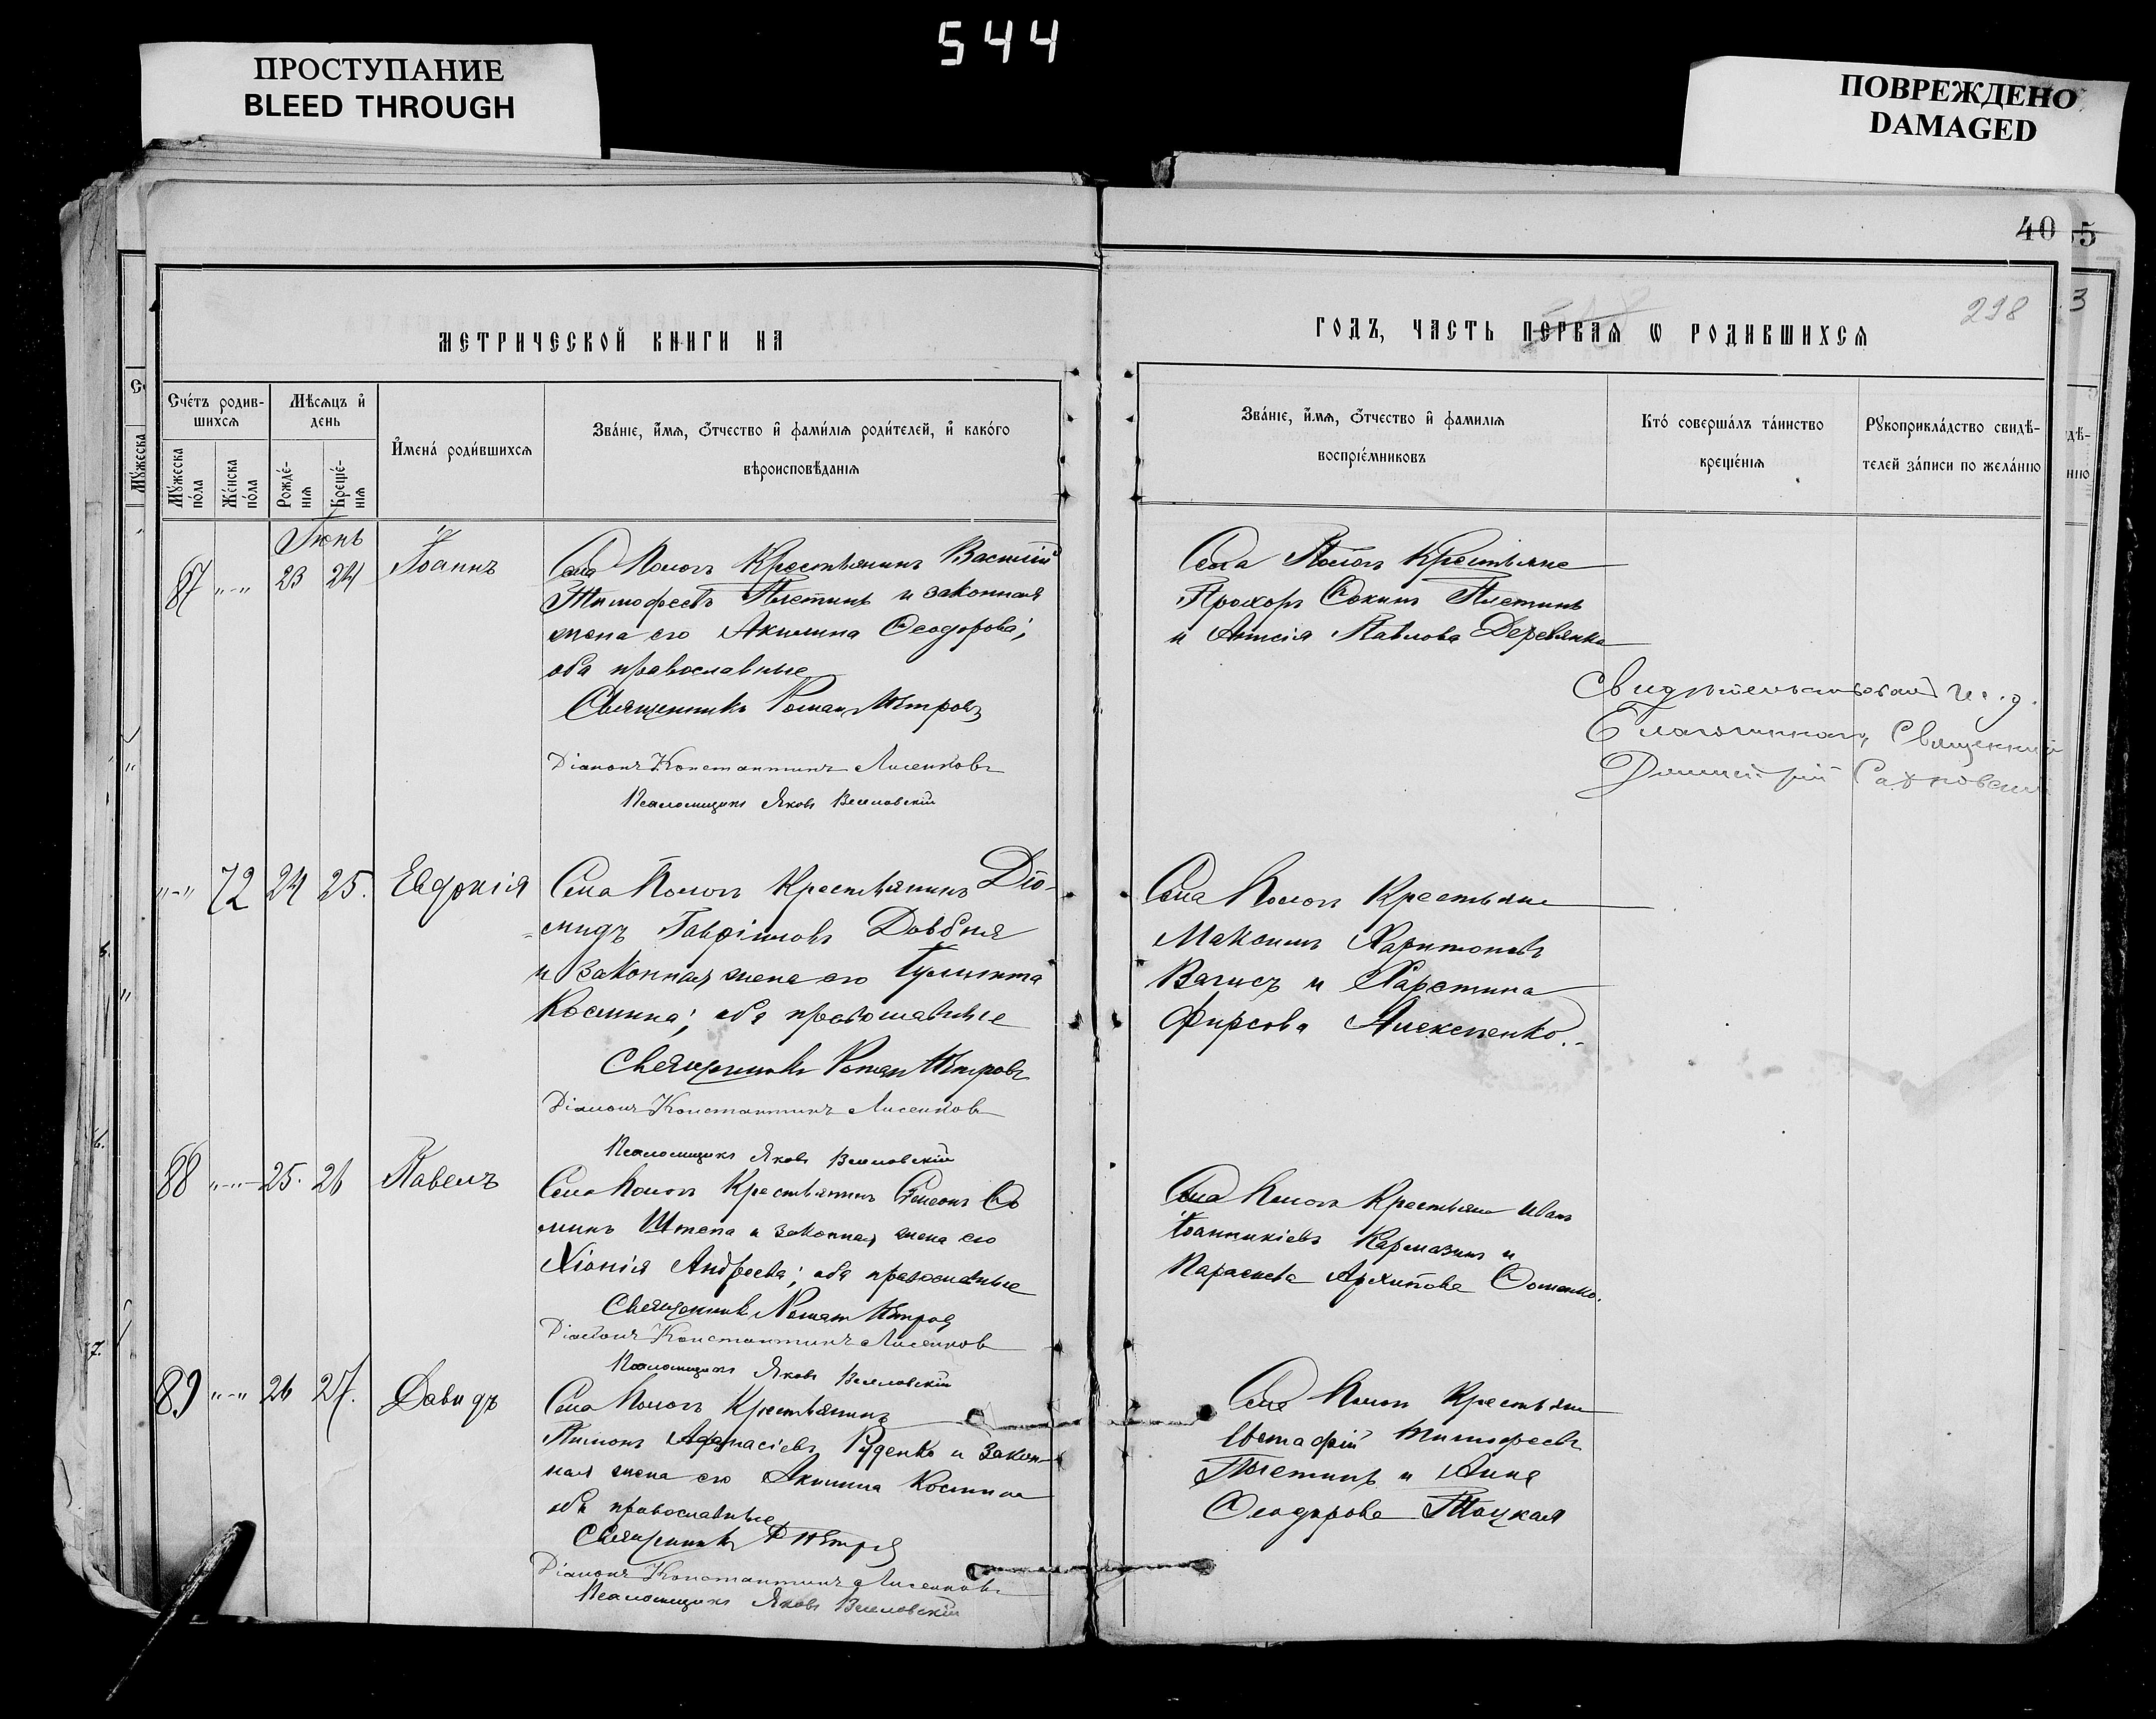 544
ПРОСТУПАНИЕ
BLEED THROUGH
ПОВРЕЖДЕНО
DAMAGED
40
55
3
298
МЕТРИЧЕСКОЙ КНИГИ НА
ГОДЪ, ЧАСТЬ ПЕРВАЯ Ѡ РОДИВШИХСЯ
Сче́тъ родив-
шихсѧ
Мѣ́сѧцъ и҆
день
Мꙋ́жеска
по́ла
Же́нска
по́ла
Рожде́-
нїѧ
Креще́-
нїѧ
И҆мена́ роди́вшихсѧ
Зва́нїе, и҆́мѧ, ѻ҆́тчество и҆ фами́лїѧ роди́телей, и҆ како́гѡ
вѣроисповѣ́данїѧ
Зва́нїе, и҆́мѧ, ѻ҆́тчество и҆ фамилїѧ
воспрїе́мниковъ
Кто̀ соверша́лъ та́инство
креще́нїѧ
Рꙋкоприкла́дство свидѣ́-
телей за́писи по жела́нїю
Іюнь
87 "-" 23 24 Іоаннъ
Села Кологъ Крестьянинъ Василій
Тимофеевъ Плетинь и законная
жена его Акилина Ѳеодорова;
оба православные
Священникъ Роман Петровъ
Діаконъ Константинъ Лисенковъ
Псаломщикъ Яковъ Веселовскій
Крестьяне
Прохоръ Плетинь
и Павлова Деревянко
Свидѣтельствовалъ и. д.
Благочиннаго, Священникъ
Димитрій
"-" 72 24 25. Евдокія
Села Крестьянинъ Діо-
мидъ Гавріиловъ Довбня
и законная жена его Іулитта
Космина; оба православные
Священникъ Роман Петровъ
Діаконъ Константинъ Лисенковъ
Псаломщикъ Яковъ Веселовскій
Села Крестьяне
Максимъ Харитоновъ
и Харетина
Фирсова Алексеенко.
88 "-" 25. 26 Павелъ
Села Крестьянинъ Симеонъ Ѳо
минъ Штепа и законная жена его
Хіонія Андреева; оба православные
Священникъ Роман Петров
Діаконъ Константинъ Лисенковъ
Псаломщикъ Яковъ Веселовскій
Села Крестьяне Иванъ
Іоанникіевъ Кармазинъ и
Параскева Архипова Ѳоменко.
89 "-" 26 27. Давидъ
Села Крестьянинъ
Пимонъ Афанасіевъ Руденко и закон-
ная жена его Акилина Космина
оба православные
Священникъ Р Петров
Діаконъ Константинъ Лисенковъ
Псаломщикъ Яковъ Веселовскій
Села Крестьяне
Евстафій Тимофеевъ
Плетинь и Анна
Ѳеодорова Троцкая